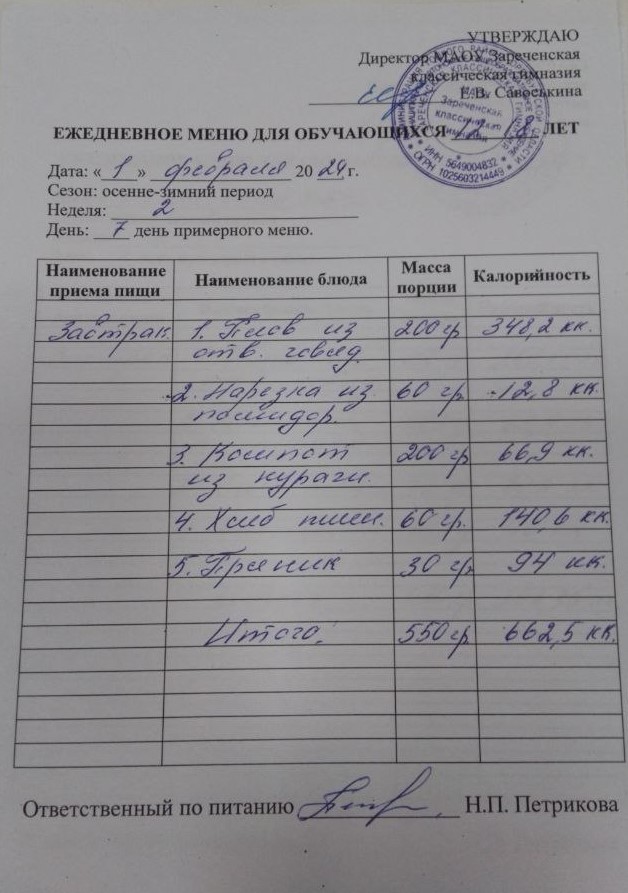 УТВЕРЖДАЮ
Директор МАОУ Зареченская
классическая гимназия
Е.В. Савоськина
Зареченская
классическая
гимназия
ИНН 5649004832
ОГРН 1025603214449
ЕЖЕДНЕВНОЕ МЕНЮ ДЛЯ ОБУЧАЮЩИХСЯ 12 - 18 ЛЕТ
Дата: «1» февраля 2024 г.
Сезон: осенне-зимний период
Неделя: 2
День: 7 день примерного меню.
Наименование приема пищи Наименование блюда Масса порции Калорийность
Завтрак 1. Плов из 200 гр 348,2 кк.
отв. говяд.
2. Нарезка из 60 гр 12,8 кк.
помидор.
3. Компот 200 гр 66,9 кк.
из кураги.
4. Хлеб пшен. 60 гр. 140,6 кк.
5. Пряник 30 гр. 94 кк.
Итого: 550 гр 662,5 кк.
Ответственный по питанию Н.П. Петрикова